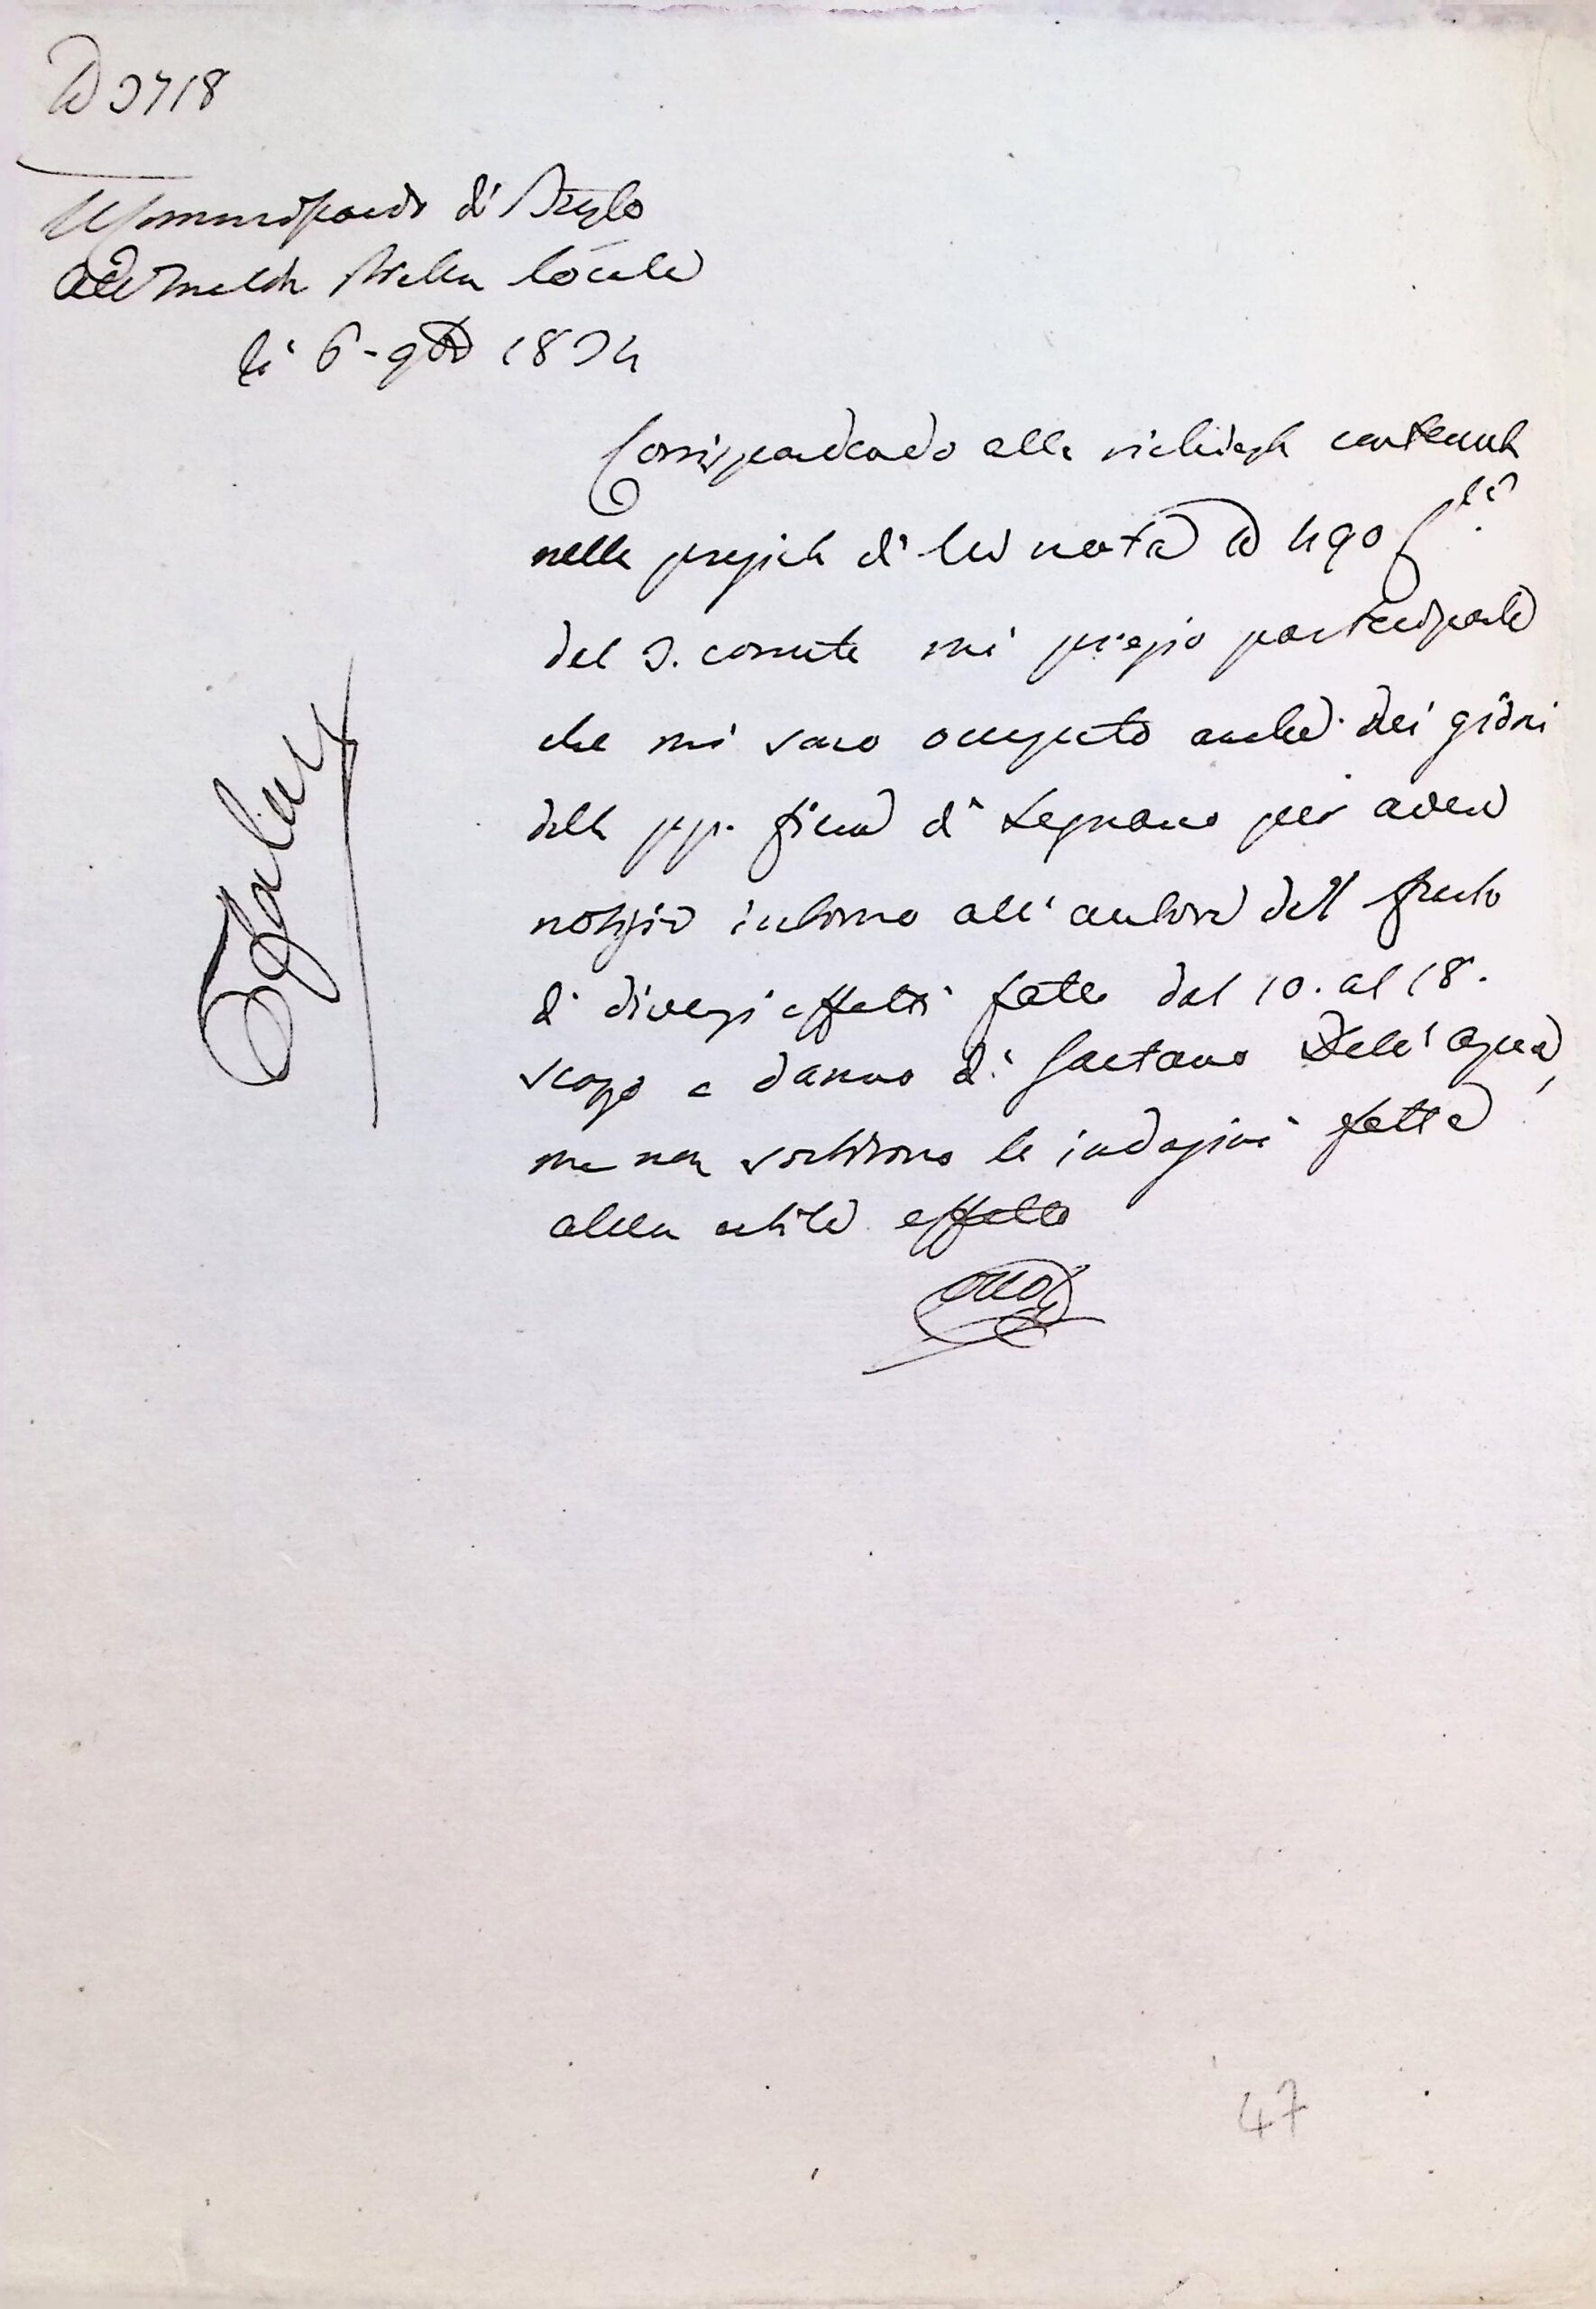 3718
di
li 6 - 9bre 1834
Corrispondendo alla richiesta contenuta
nella pregiata di lei nota N 490
del 3. corrente mi pregio partecipare
che mi sono occupato anche dei giorni
della pp. fiera di Legnano per avere
notizie intorno all'autore del furto
di diversi effetti fatto dal 10. al 18.
scopo a danno di Gaetano Dell'aqua,
ma non sortirono le indagini fatte
alcun utile effetto
47